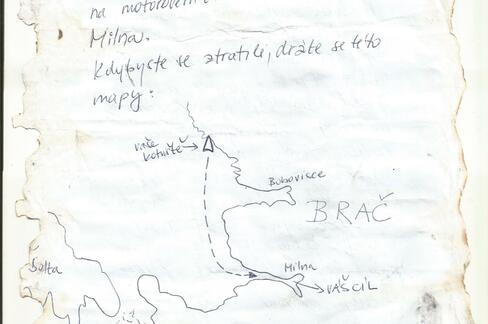 na motorovém
Milna.
Kdybyste se ztratili, držte se této
mapy:
vaše
kotviště
Bobovisce
BRAČ
Šolta
Milna
VÁŠ CÍL